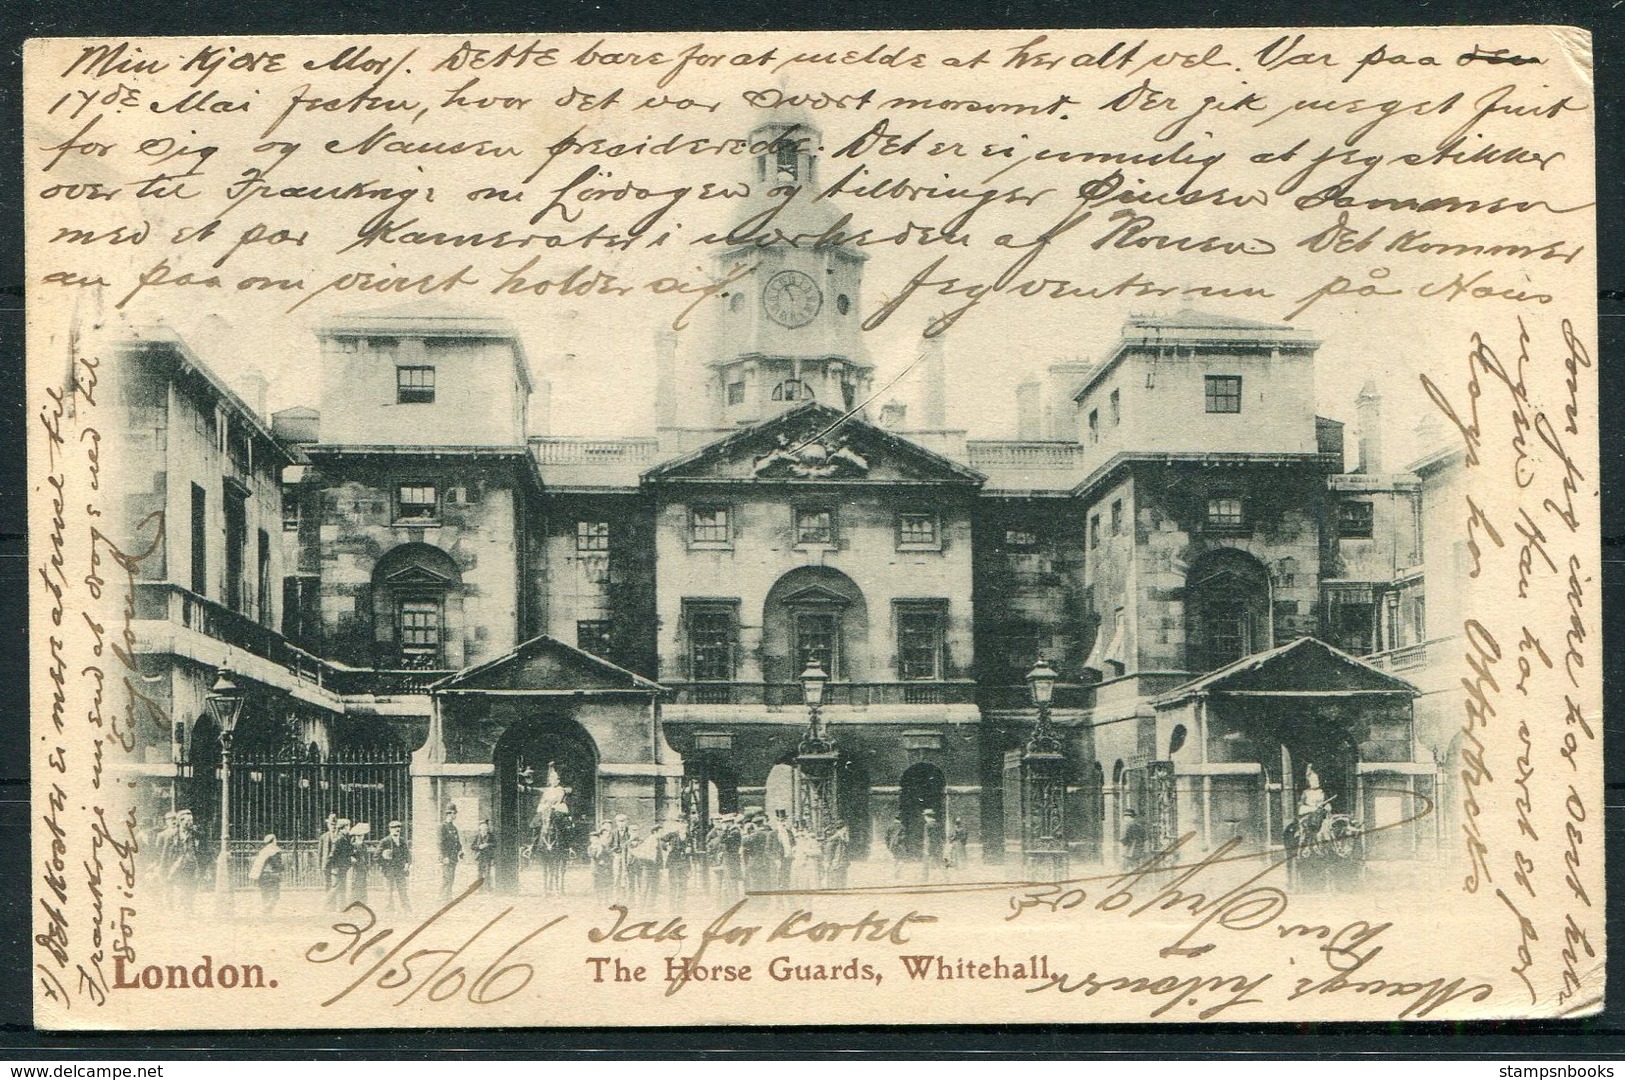 Min Kjære Mor! Dette bare for at melde at her alt vel. Var paa den
17de Mai festen, hvor det var svært morsomt. Der gik meget fint
for sig og Nansen presiderede. Det er ei umulig at jeg stikker
over til Frankrige om Lördagen og tilbringer Pinsen sammen
med et par Kamerater i nærheden af Rouen. Det kommer
an paa om veiret holder sig. Jeg venter nu på Hans
som jeg ikke har seet her
ungen Han har været et par
Dage hos
Mange hilsner
Din
Tak for kortet
31/5/06
x) Det koster ei mere at reise til
Frankrige in end at drage ned til
London.
The Horse Guards, Whitehall.
stampsnbooks